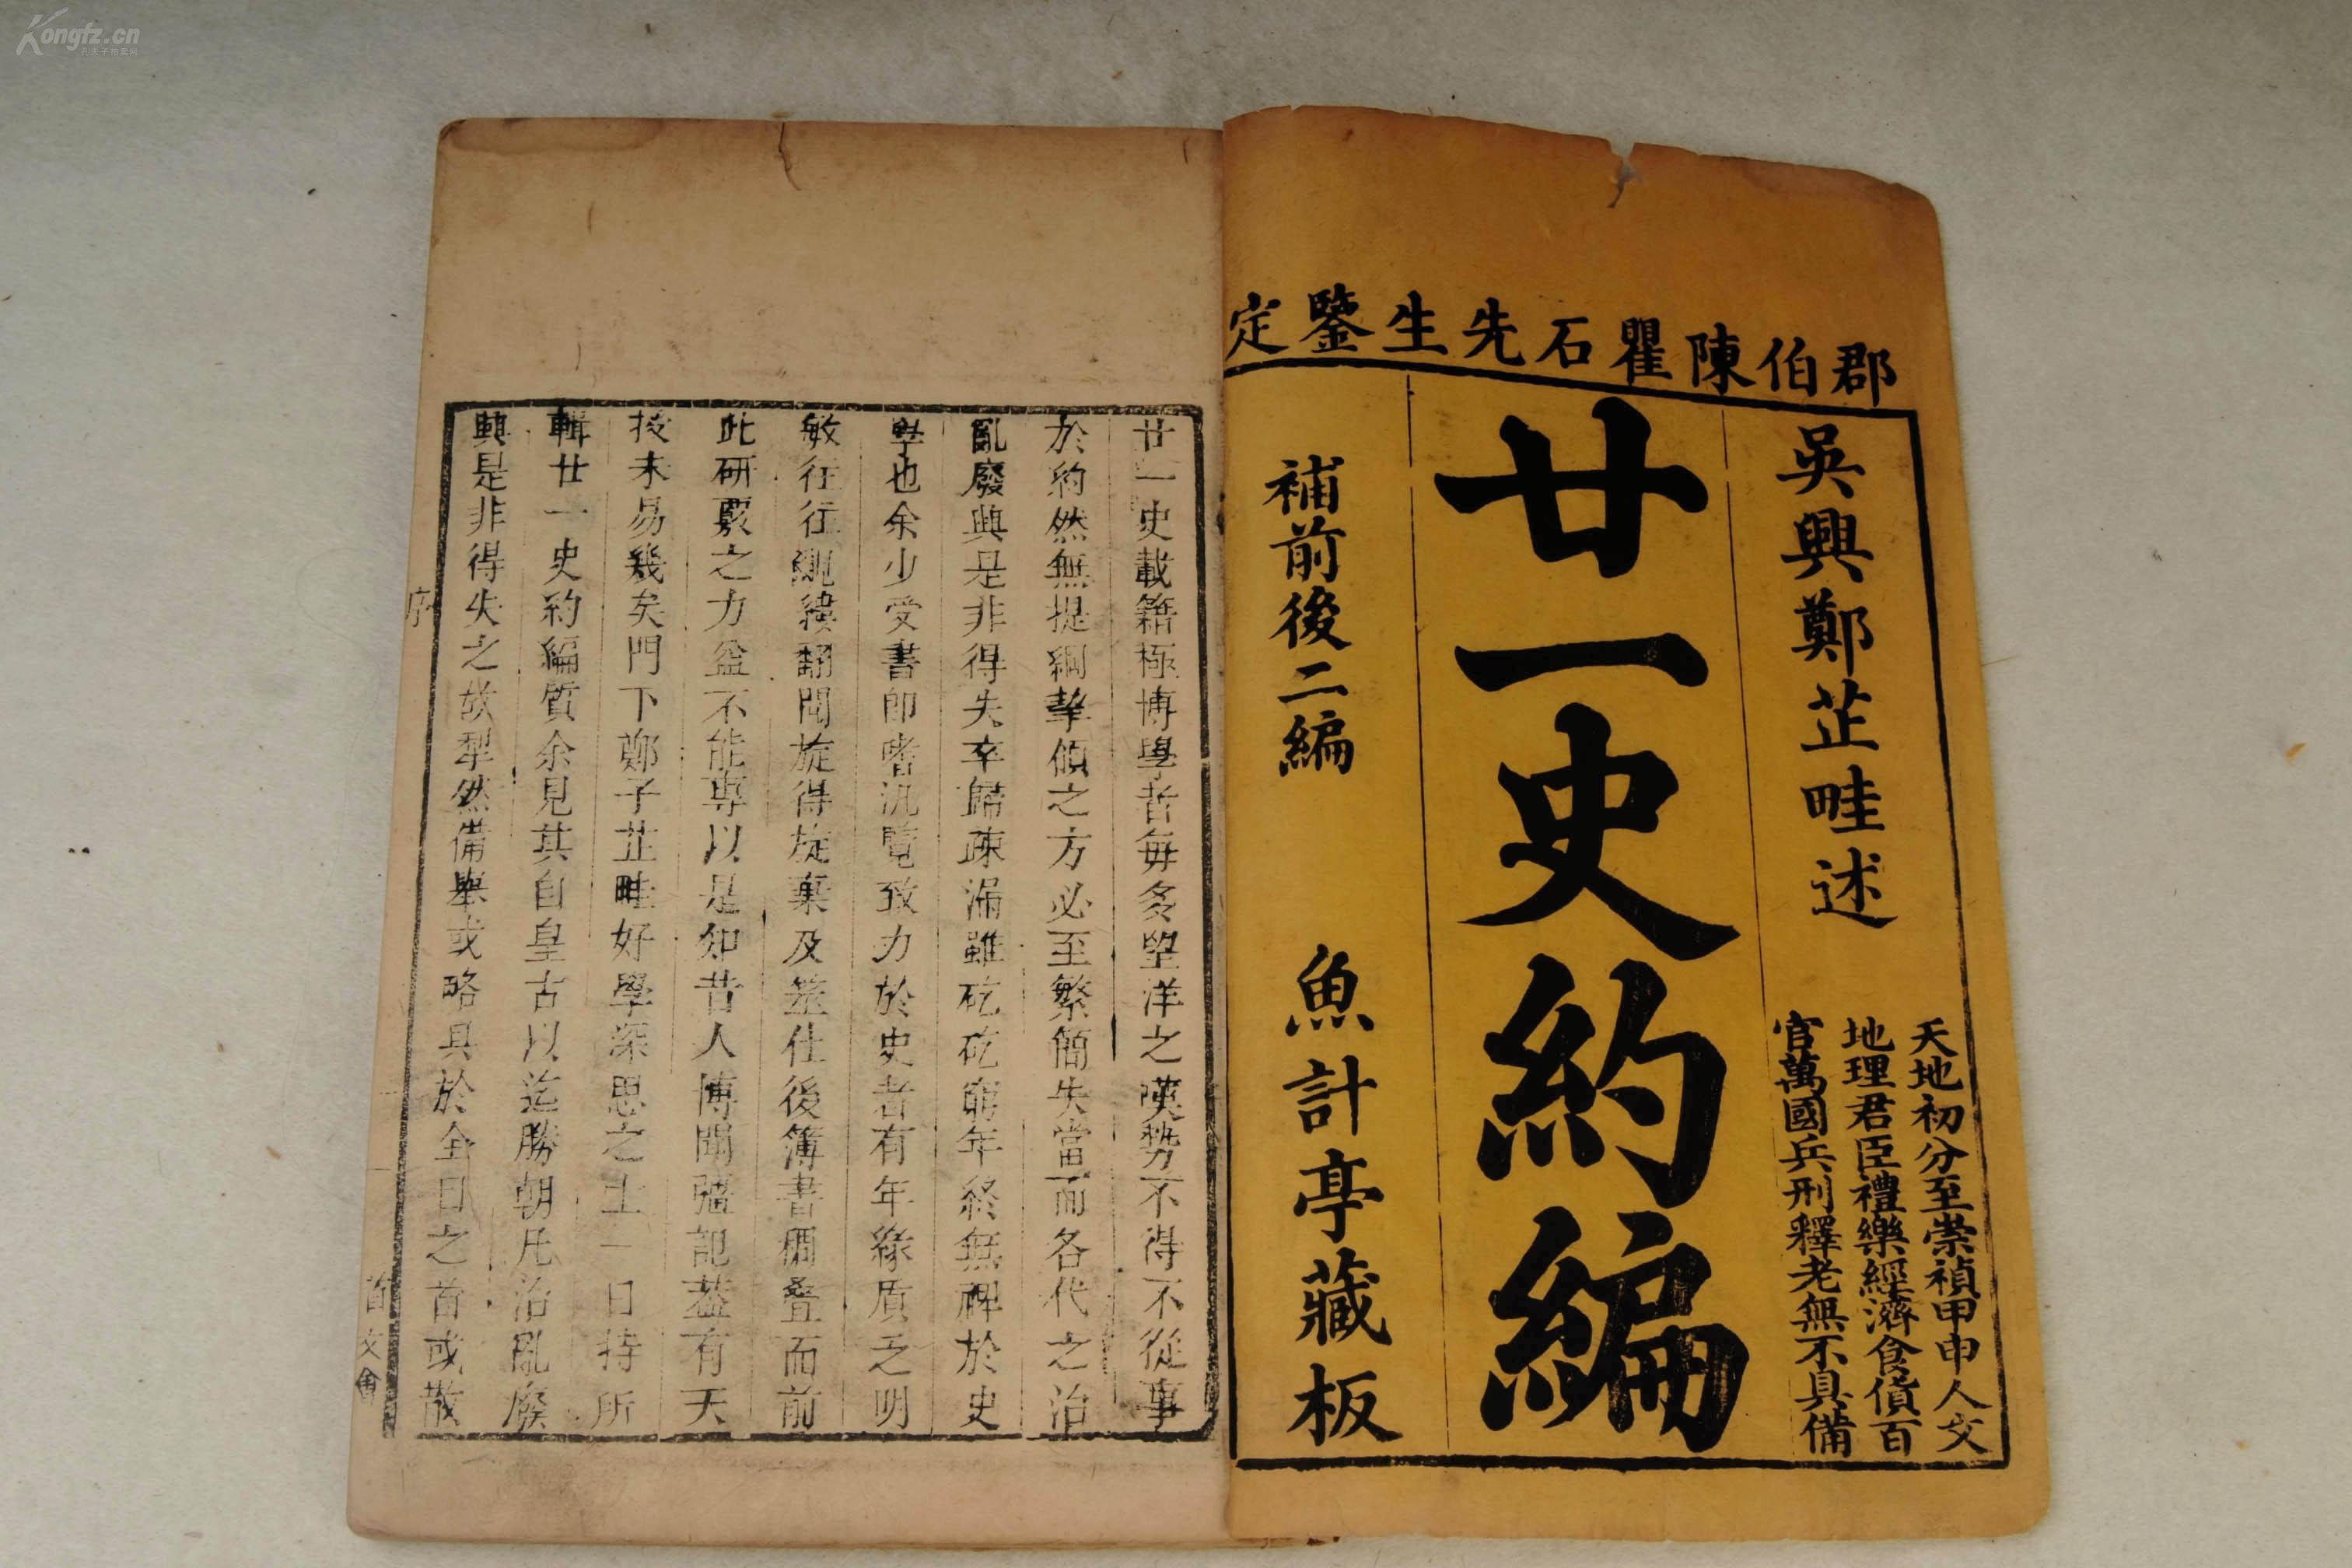 Kongfz.cn
郡伯陳瞿石先生鑒定
吳興鄭芷畦述
天地初分至崇禎甲申人文
地理君臣禮樂經濟食貨百
官萬國兵刑釋老無不具備
廿一史約編
補前後二編
魚計亭藏板
廿一史載籍極博學者每多望洋之嘆勢不得不從事
於約然無提綱挈領之方必至繁簡失當而各代之治
亂廢興是非得失卒歸疎漏雖矻矻窮年終無裨於史
學也余少受書即嗜汎覽致力於史者有年緣質乏明
敏往往繙閱旋得旋棄及筮仕後簿書稠疊而前
此研覈之力益不能專以是知昔人博聞强記葢有天
授未易幾矣門下鄭子芷畦好學深思之士一日持所
輯廿一史約編質余見其自皇古以迄勝朝凡治亂廢
興是非得失之故犁然備舉或略具於全目之首或散
序